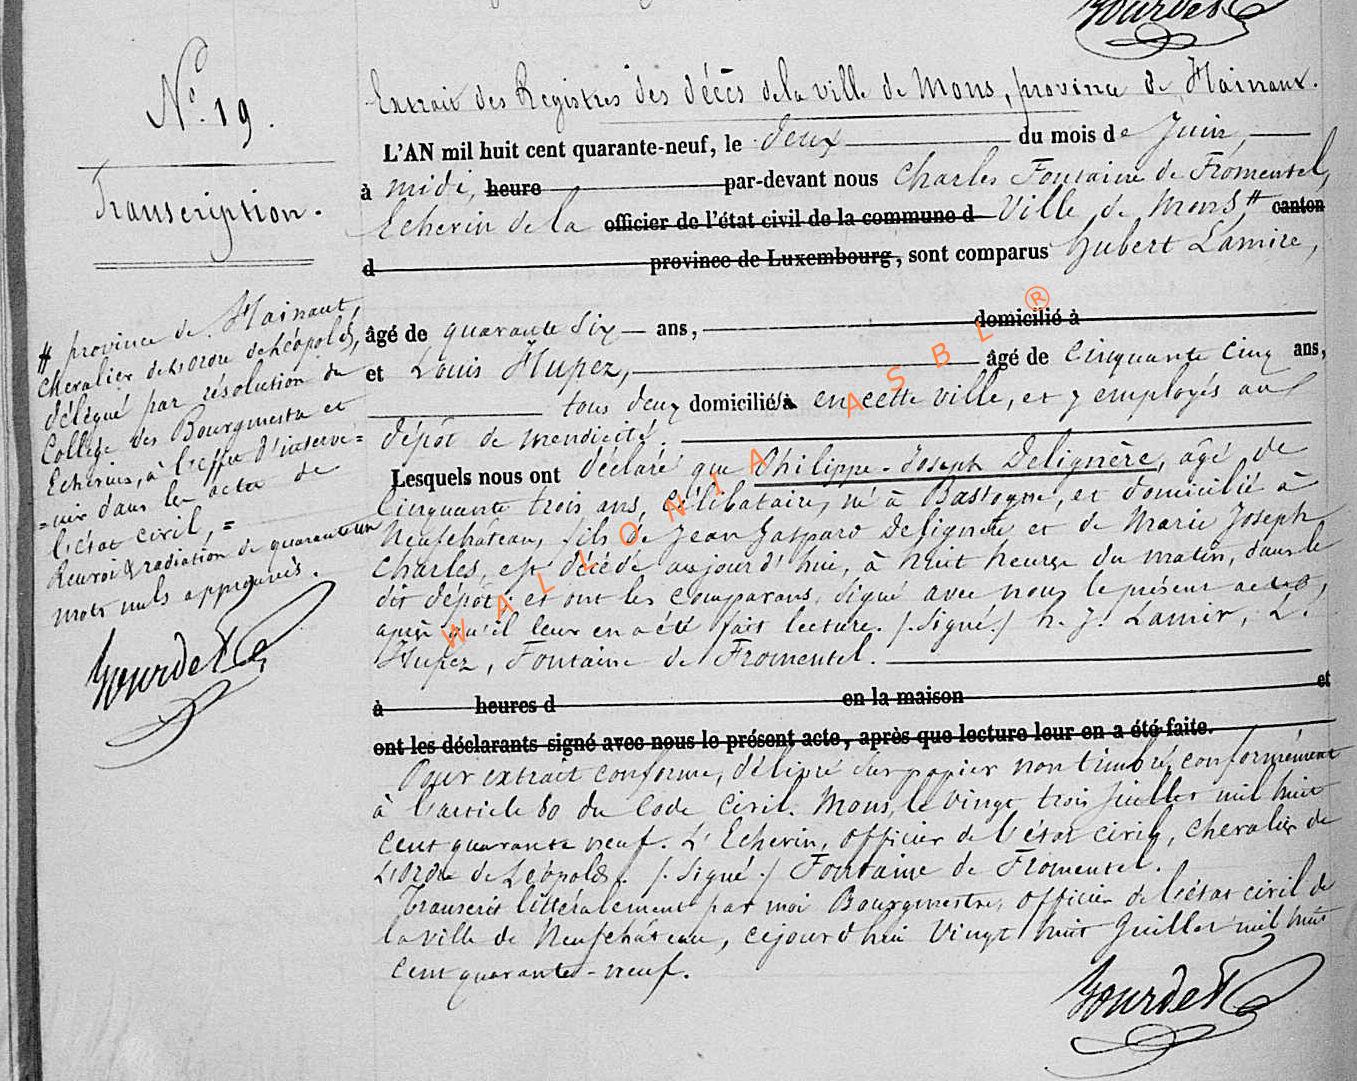 Nº. 19.
Transcription.
# province de Hainaut,
chevalier de l'ordre de Léopold,
délégué par résolution du
Collège des Bourgmestre et
Echevins, à l'effet d'interve=
=nir dans les actes de
l'état civil, =
Renvoi & radiation de quarante un
mots nuls approuvés.
Extrait des Registres des décès de la ville de Mons, province de Hainaut.
L'AN mil huit cent quarante-neuf, le deux du mois de Juin,
à midi, heure par-devant nous Charles Fontaine de Fromentel,
Echevin de la officier de l'état civil de la commune d Ville de Mons # canton
d province de Luxembourg, sont comparus hubert Lamire,
âgé de quarante six ans, domicilié à
et Louis Hupez, âgé de Cinquante Cinq ans,
tous deux domiciliés à en cette ville, et y employés au
dépôt de mendicité.
Lesquels nous ont déclaré que Philippe-Joseph Delignère, âgé de
Cinquante trois ans, célibataire, né à Bastogne, et domicilié à
Neufchâteau, fils de Jean Gaspard Delignère et de Marie Joseph
Charles, est décédé aujourd'hui, à huit heures du matin, dans le
dit dépôt; et ont les comparans, signé avec nous le présent acte,
après qu'il leur en a été fait lecture. /.Signé./ h. J. Lamir, L.
Hupez, Fontaine de Fromentel.
à heures d en la maison et
ont les déclarants signé avec nous le présent acte, après que lecture leur en a été faite.
Pour extrait conforme, délivré sur papier non timbré, conformément
à l'article 80 du Code Civil. Mons, le vingt trois juillet mil huit
cent quarante neuf. L'Echevin, officier de l'état civil, chevalier de
L'ordre de Léopold. /.Signé./ Fontaine de Fromentel.
Transcrit littéralement par moi Bourgmestre, officier de l'état civil de
la ville de Neufchâteau, cejourd'hui vingt huit Juillet mil huit
cent quarante-neuf.
WALLONIA ASBL ®